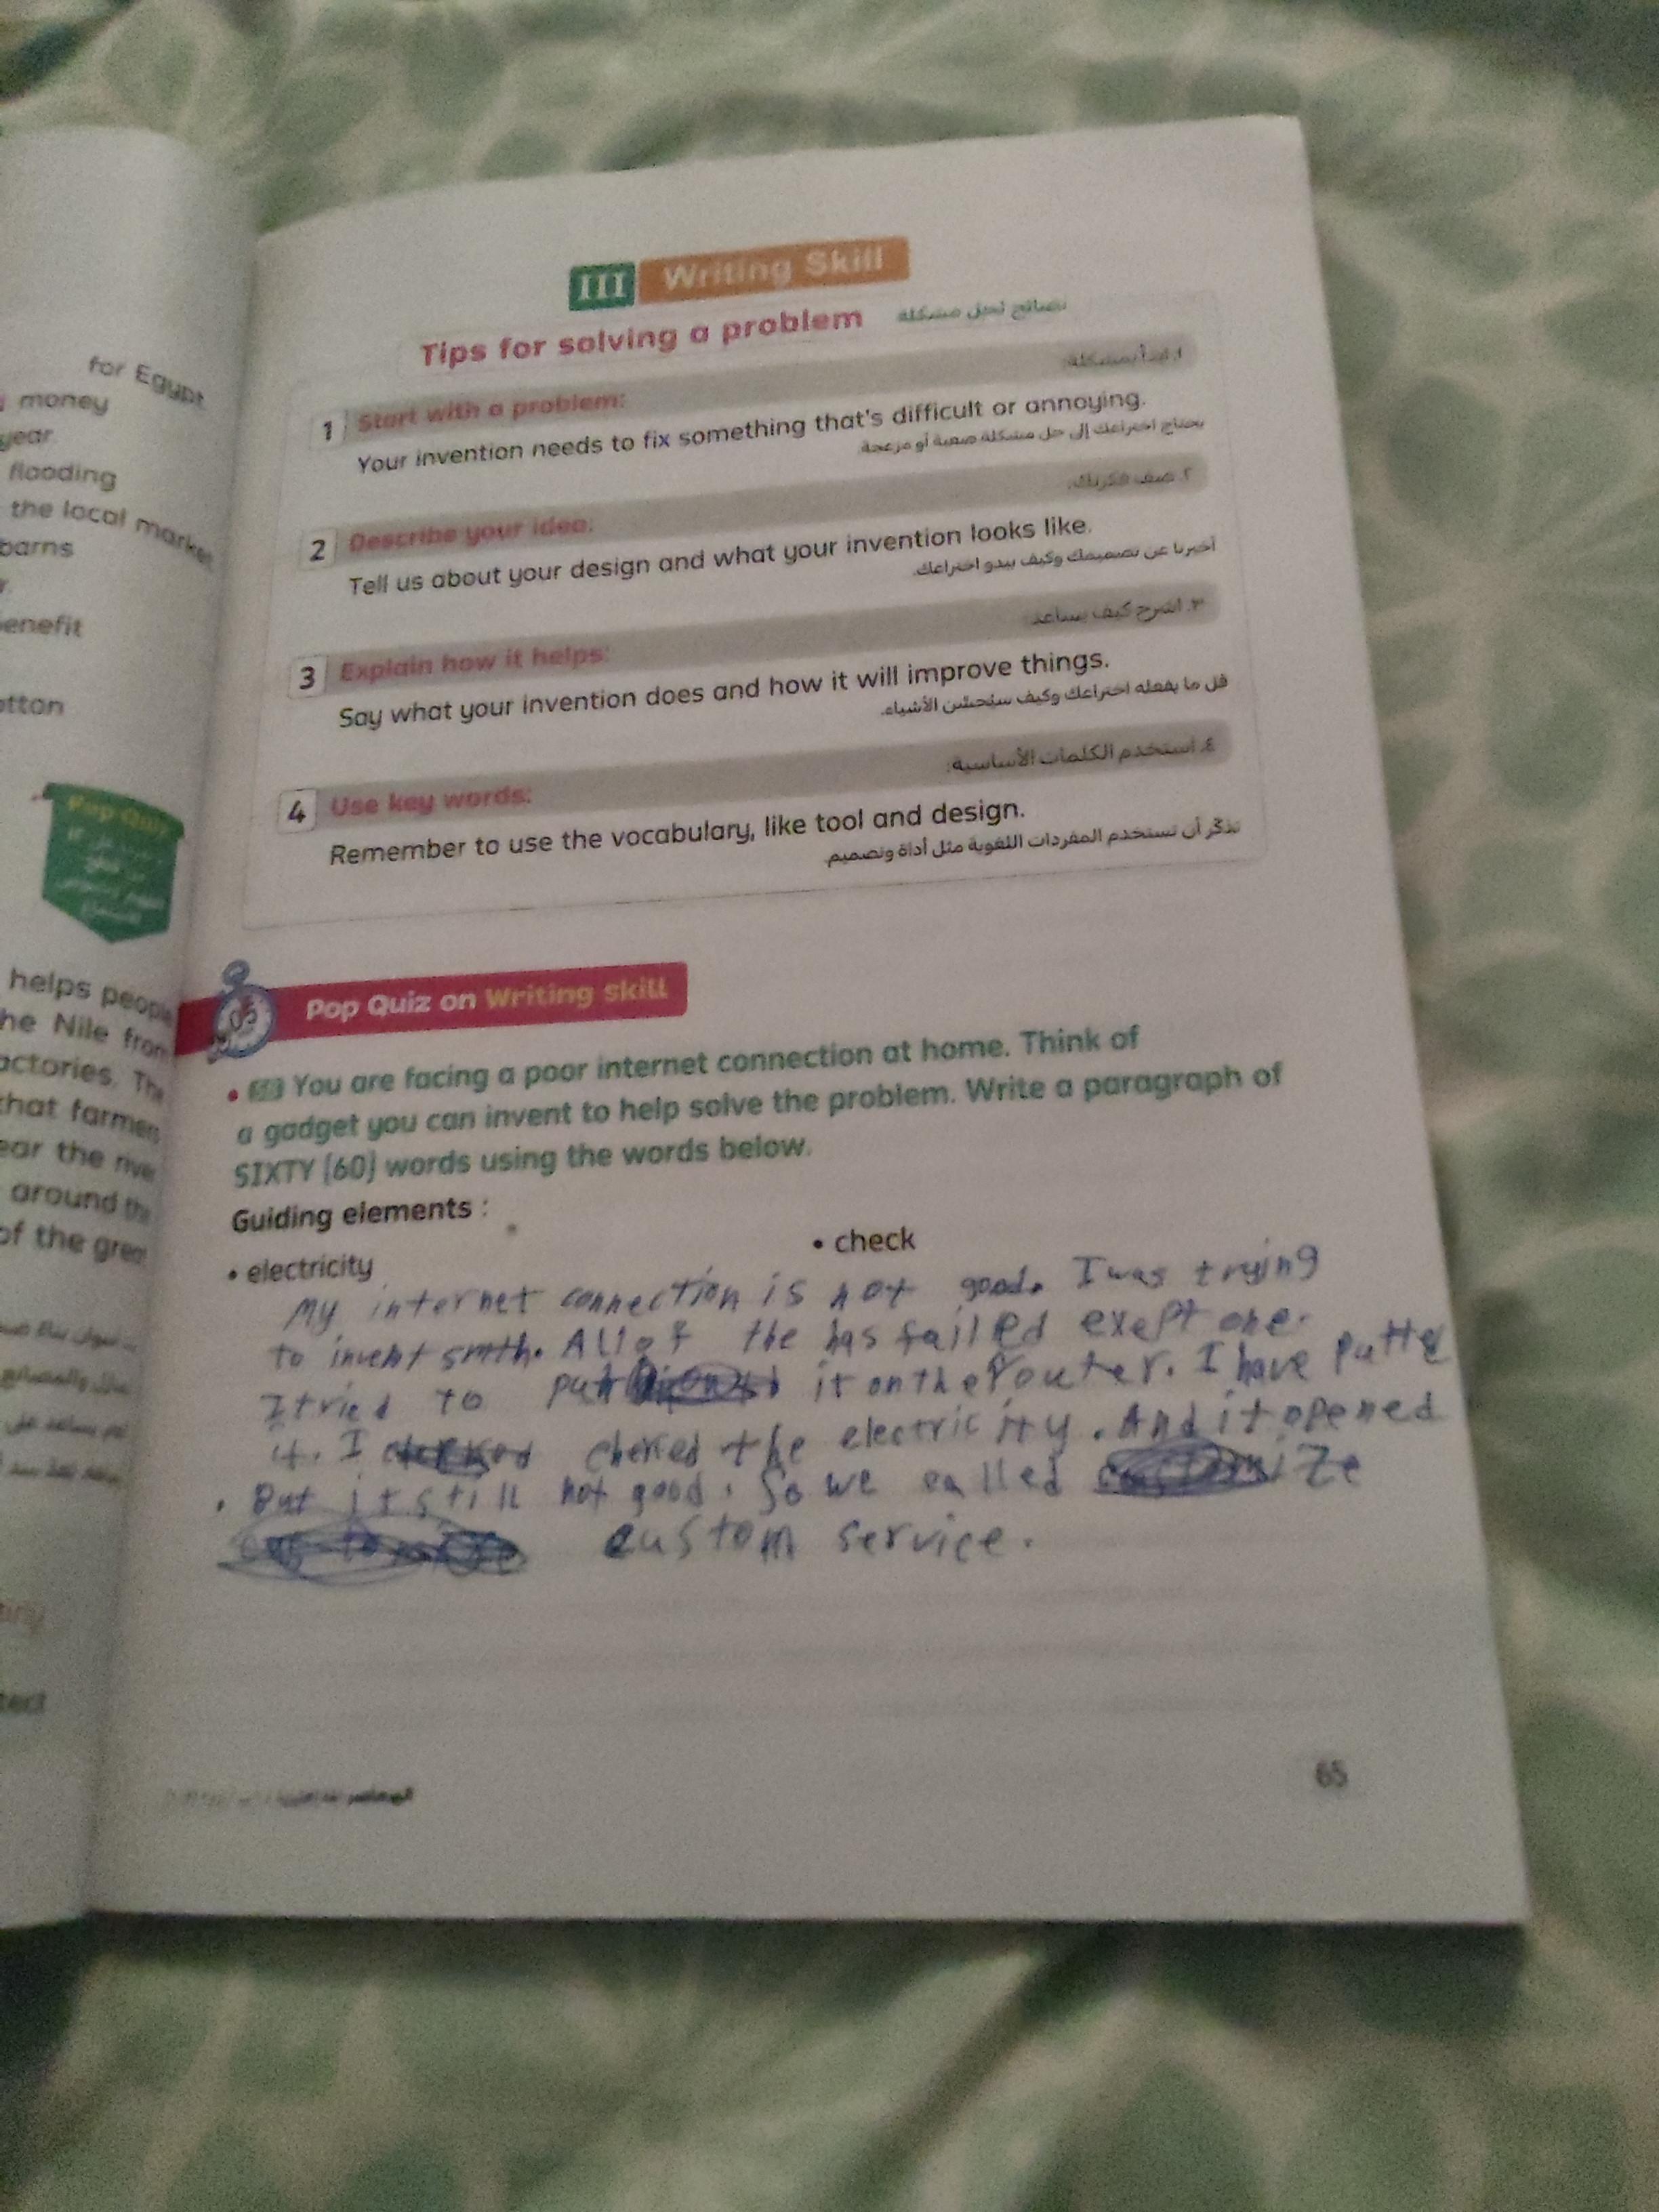 for Egypt
money
year
flooding
the local market
barns
enefit
otton
Pop Quiz
helps people
he Nile from
actories. The
that farmers
ear the river
around the
of the great
III Writing Skill
Tips for solving a problem نصائح لحل مشكلة
1 Start with a problem: ١. ابدأ بمشكلة:
Your invention needs to fix something that's difficult or annoying.
يحتاج اختراعك إلى حل مشكلة صعبة أو مزعجة
2 Describe your idea: ٢. صف فكرتك:
Tell us about your design and what your invention looks like.
أخبرنا عن تصميمك وكيف يبدو اختراعك.
3 Explain how it helps: ٣. اشرح كيف يساعد:
Say what your invention does and how it will improve things.
قل ما يفعله اختراعك وكيف سيُحسّن الأشياء.
4 Use key words: ٤. استخدم الكلمات الأساسية:
Remember to use the vocabulary, like tool and design.
تذكّر أن تستخدم المفردات اللغوية مثل أداة وتصميم.
05
Pop Quiz on Writing skill
• You are facing a poor internet connection at home. Think of
a gadget you can invent to help solve the problem. Write a paragraph of
SIXTY (60) words using the words below.
Guiding elements :
• electricity • check
My internet connection is not good. I was trying
to invent smth. All of the has failed exept one.
I tried to put it on the Router. I have putted
it. I cheked the electricity. And it opened
. But it still not good. So we called
custom service.
65